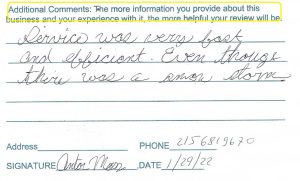 Additional Comments: The more information you provide about this
business and your experience with it, the more helpful your review will be.
Service was very fast
and efficient. Even though
there was a snow storm
Address PHONE 2156819670
SIGNATURE Anton Moss DATE 1/29/22